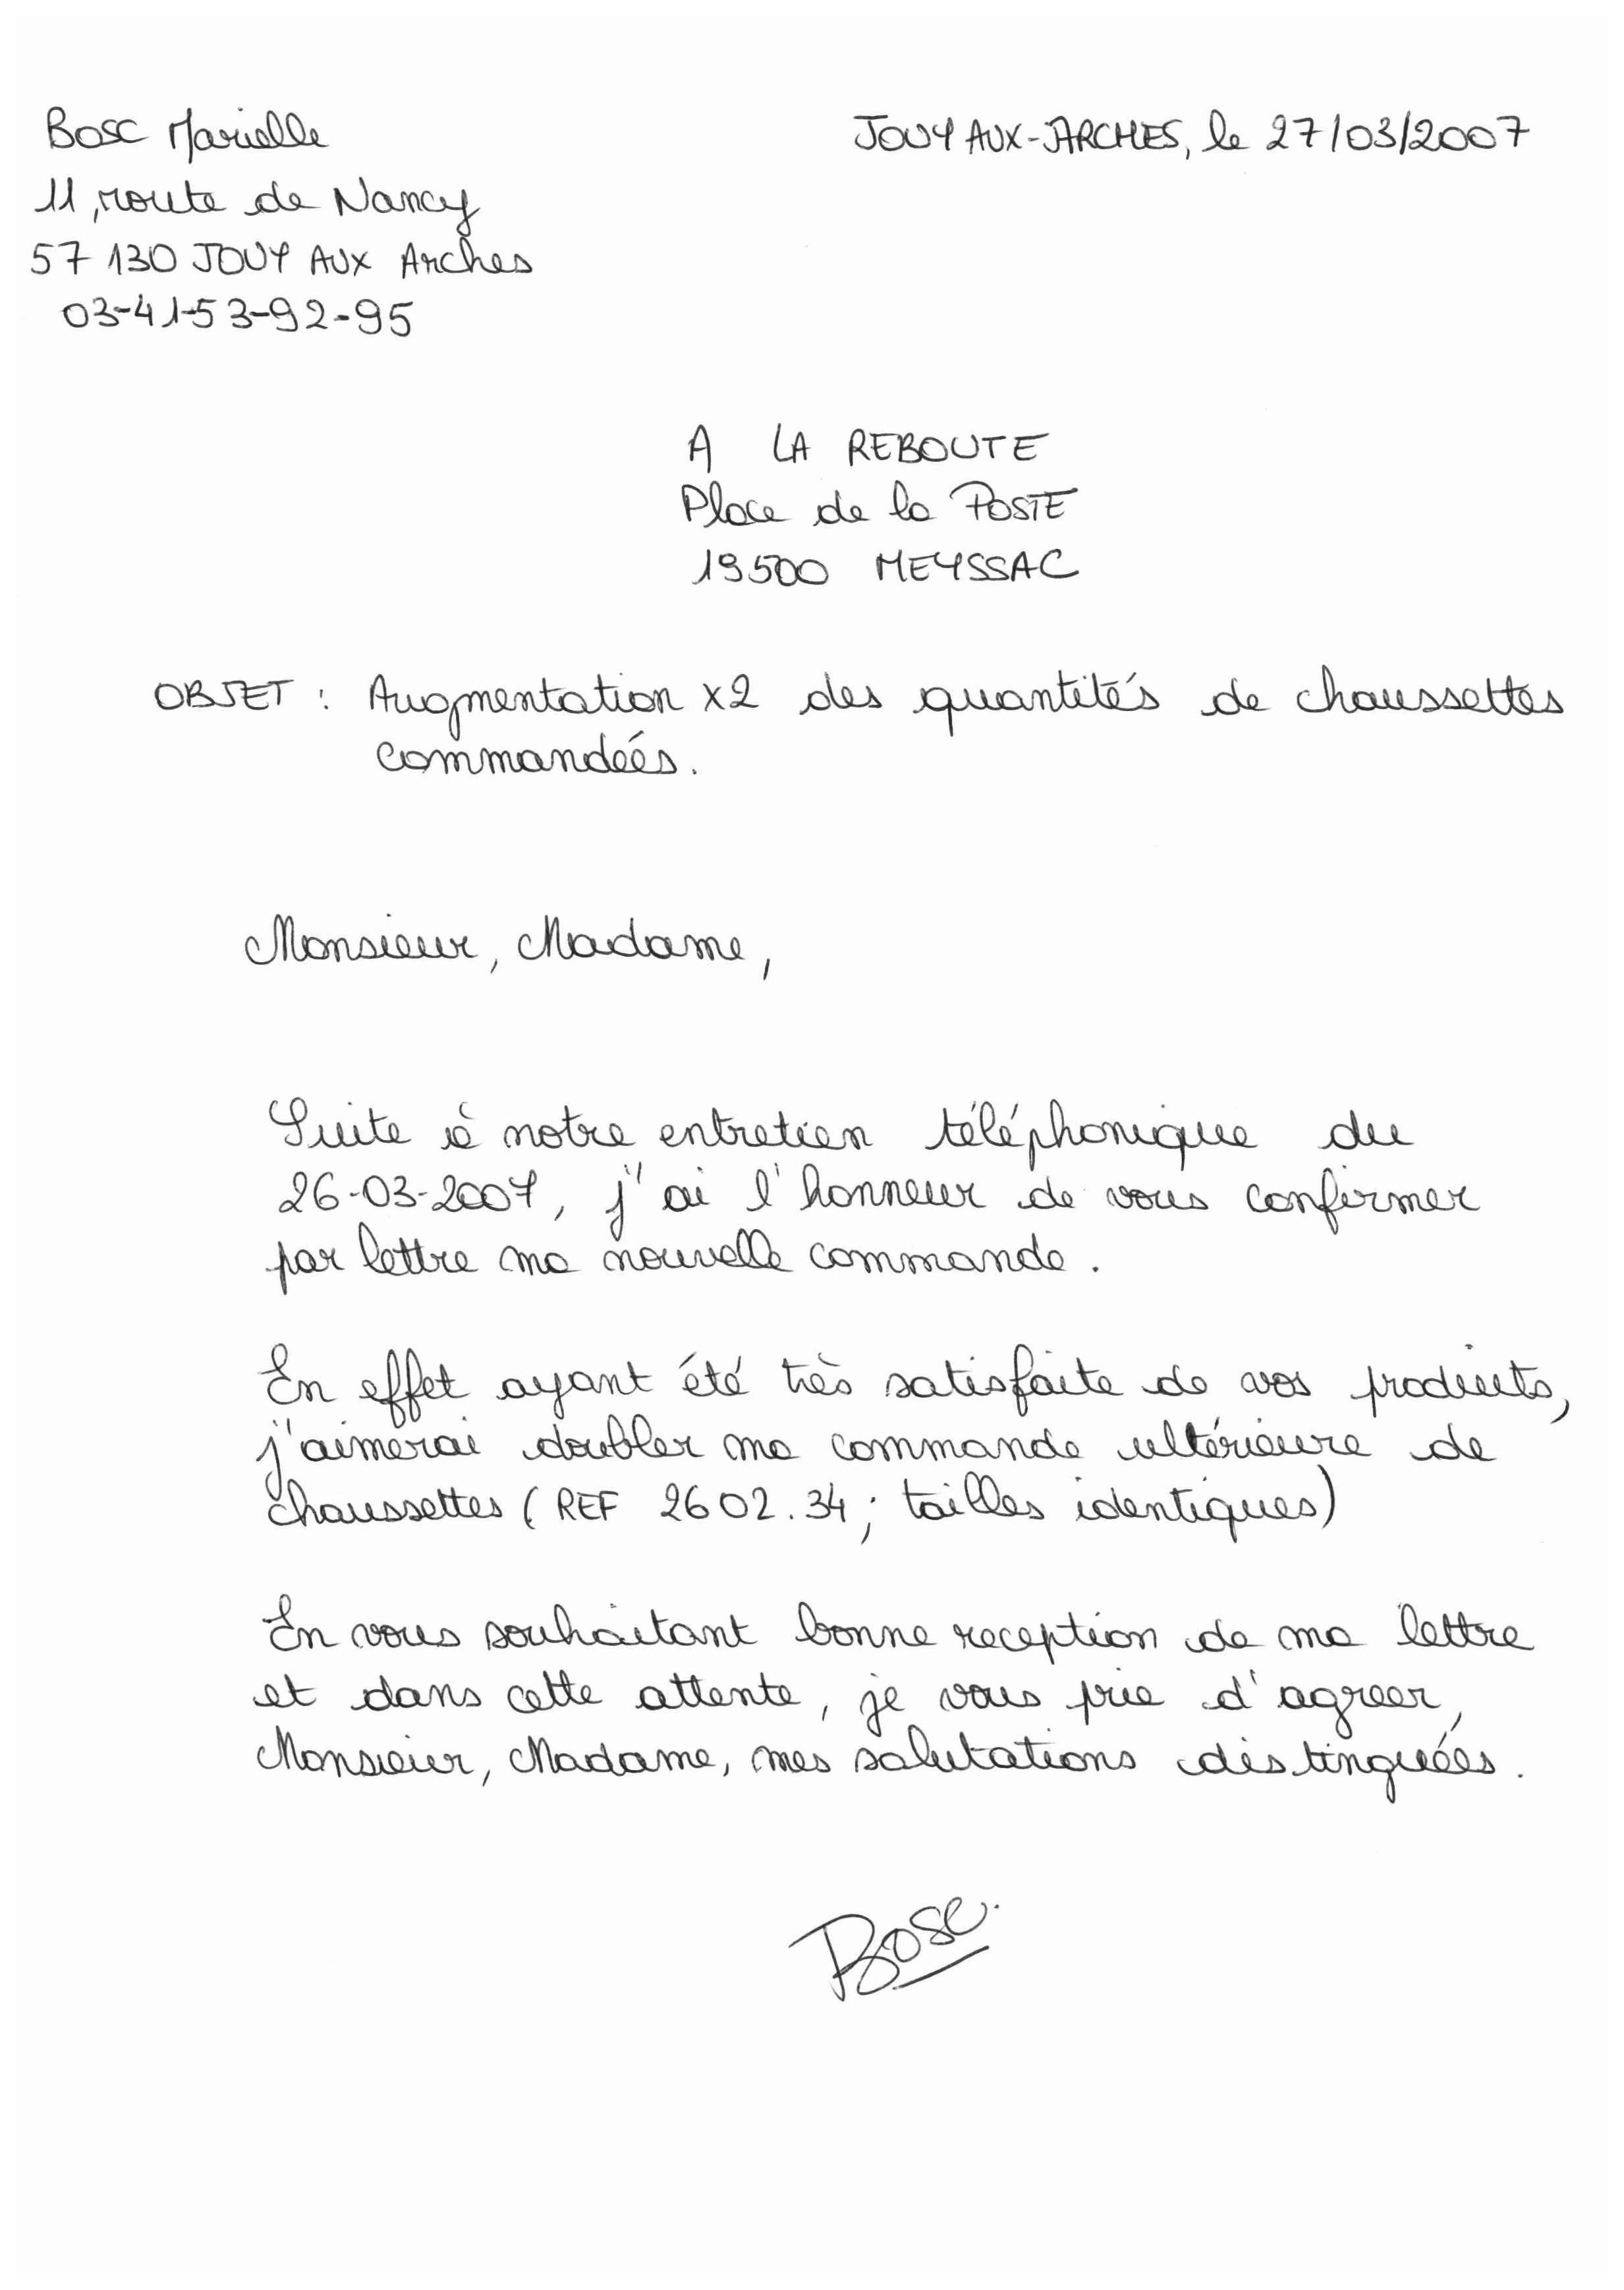 Bosc Marielle
JOUY AUX-ARCHES, le 27/03/2007
11, route de Nancy
57 130 JOUY AUX Arches
03-41-53-92-95
A LA REBOUTE
Place de la POSTE
19500 MEYSSAC
OBJET : Augmentation x2 des quantités de chaussettes
commandées.
Monsieur, Madame,
Suite à notre entretien téléphonique du
26-03-2007, j'ai l'honneur de vous confirmer
par lettre ma nouvelle commande.
En effet ayant été très satisfaite de vos produits,
j'aimerai doubler ma commande ultérieure de
chaussettes (REF 2602.34; tailles identiques)
En vous souhaitant bonne reception de ma lettre
et dans cette attente, je vous prie d'agreer,
Monsieur, Madame, mes salutations distinguées.
Bosc.